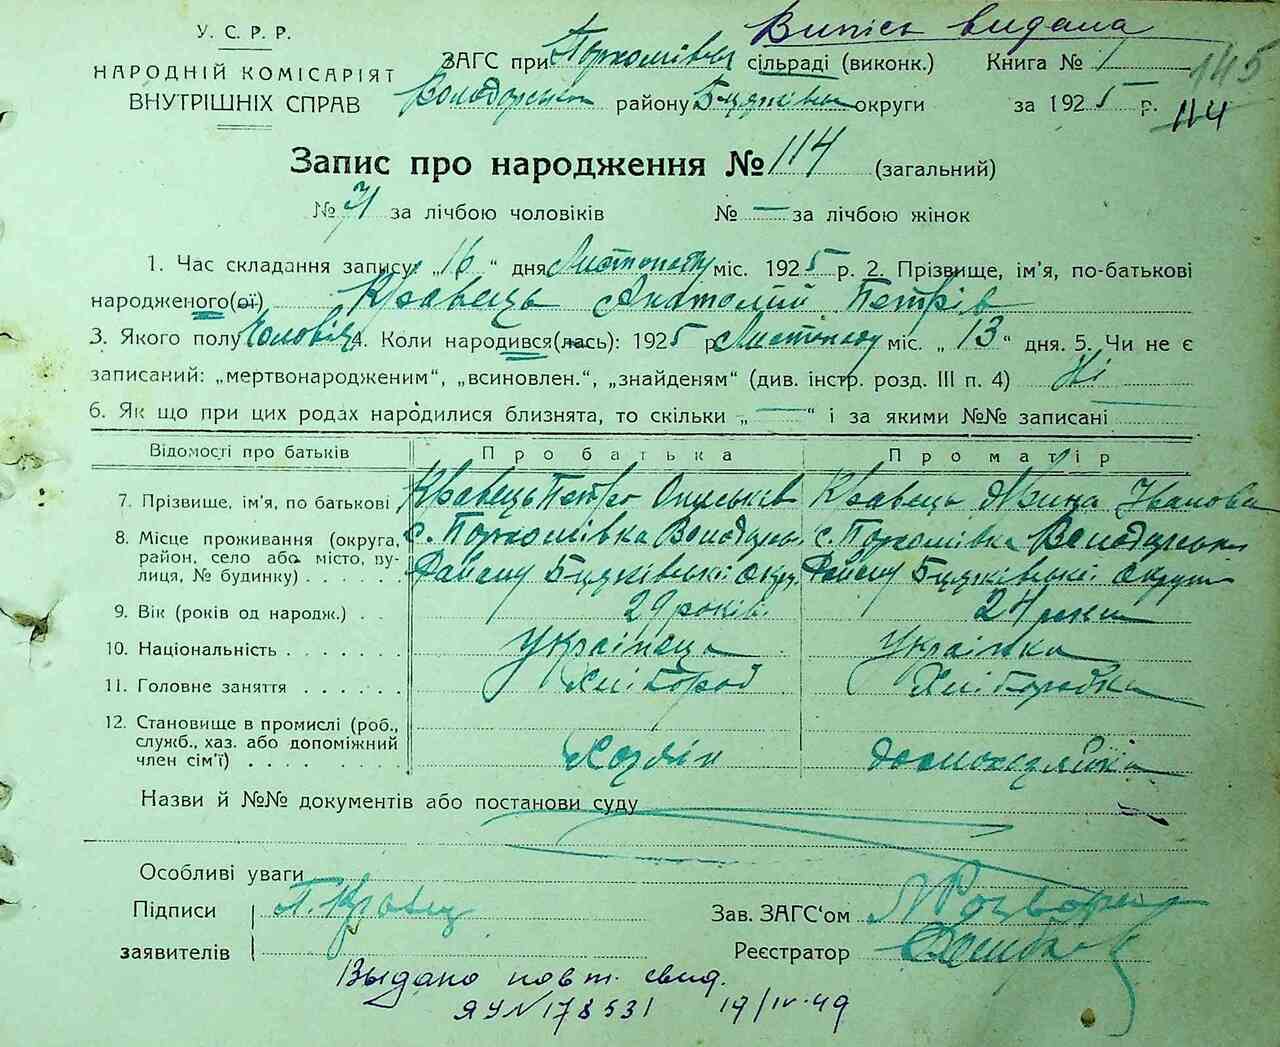 Випись видана
У. С. Р. Р.
НАРОДНІЙ КОМІСАРІЯТ
ВНУТРІШНІХ СПРАВ
ЗАГС при сільраді (виконк.) Книга № 1 145
району округи за 1925 р. 114
Запис про народження № 114 (загальний)
№ за лічбою чоловіків № — за лічбою жінок
1. Час складання запису „16“ дня Листопаду міс. 1925 р. 2. Прізвище, ім'я, по-батькові
народженого(ої) Кравець Анатолий Петрів
3. Якого полу Чоловіч 4. Коли народився(лась): 1925 р Листопаду міс. „13“ дня. 5. Чи не є
записаний: „мертвонародженим“, „всиновлен.“, „знайденям“ (див. інстр. розд. III п. 4) Ні
6. Як що при цих родах народилися близнята, то скільки „—“ і за якими №№ записані
Відомості про батьків Про батька Про матір
7. Прізвище, ім'я, по батькові Кравець Петро Кравець Ярина Іванова
8. Місце проживання (округа, район, село або місто, вулиця, № будинку)
9. Вік (років од народж.) 29 років 24 роки
10. Національність Українець Українка
11. Головне заняття Хлібороб Хліборобка
12. Становище в промислі (роб., служб., хаз. або допоміжний член сім'ї) Хозяїн домохозяйка
Назви й №№ документів або постанови суду
Особливі уваги
Підписи заявителів П. Кравец
Зав. ЗАГС'ом
Реєстратор
Выдано повт. свид.
ЯУ № 178531 19/IV-49